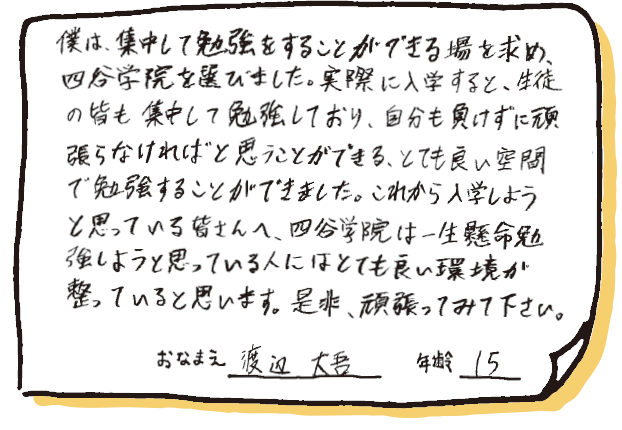 僕は、集中して勉強をすることができる場を求め、
四谷学院を選びました。実際に入学すると、生徒
の皆も集中して勉強しており、自分も負けずに頑
張らなければと思うことができる、とても良い空間
で勉強することができました。これから入学しよう
と思っている皆さんへ、四谷学院は一生懸命勉
強しようと思っている人にはとても良い環境が
整っていると思います。是非、頑張ってみて下さい。
おなまえ 渡辺 大吾 年齢 15